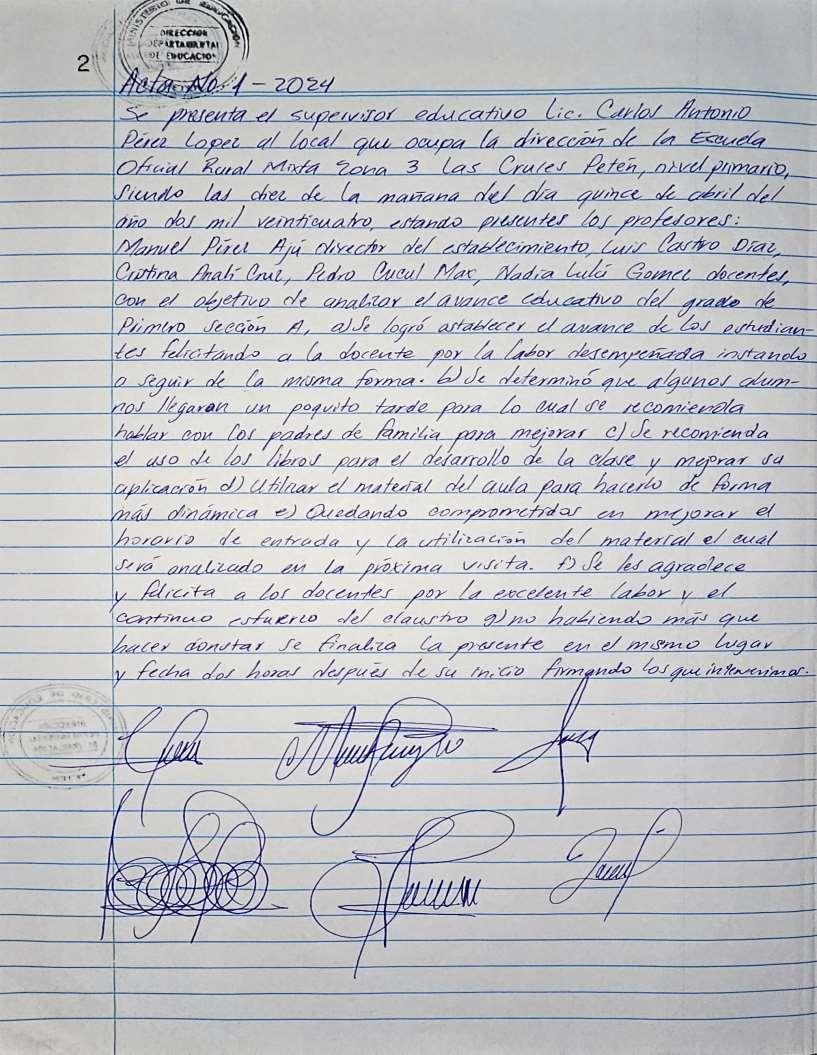 MINISTERIO DE EDUCACION
DIRECCION
DEPARTAMENTAL
DE EDUCACION
2
Acta No. 1 - 2024
Se presenta el supervisor educativo Lic. Carlos Antonio
Pérez Lopez al local que ocupa la dirección de la Escuela
Oficial Rural Mixta zona 3 Las Cruces Petén, nivel primario,
siendo las diez de la mañana del día quince de abril del
año dos mil veinticuatro, estando presentes los profesores:
Manuel Pérez Ajú director del establecimiento, Luis Castro Díaz,
Cristina Analí Cruz, Pedro Cucul Max, Nadia Lulú Gomez docentes,
con el objetivo de analizar el avance educativo del grado de
Primero sección A, a) Se logró establecer el avance de los estudian-
tes felicitando a la docente por la labor desempeñada instando
a seguir de la misma forma. b) Se determinó que algunos alum-
nos llegaron un poquito tarde para lo cual se recomienda
hablar con los padres de familia para mejorar c) Se recomienda
el uso de los libros para el desarrollo de la clase y mejorar su
aplicación d) Utilizar el material del aula para hacerlo de forma
más dinámica e) Quedando comprometidos en mejorar el
horario de entrada y la utilización del material el cual
será analizado en la próxima visita. f) Se les agradece
y felicita a los docentes por la excelente labor y el
continuo esfuerzo del claustro g) no habiendo más que
hacer constar se finaliza la presente en el mismo lugar
y fecha dos horas después de su inicio firmando los que intervenimos.